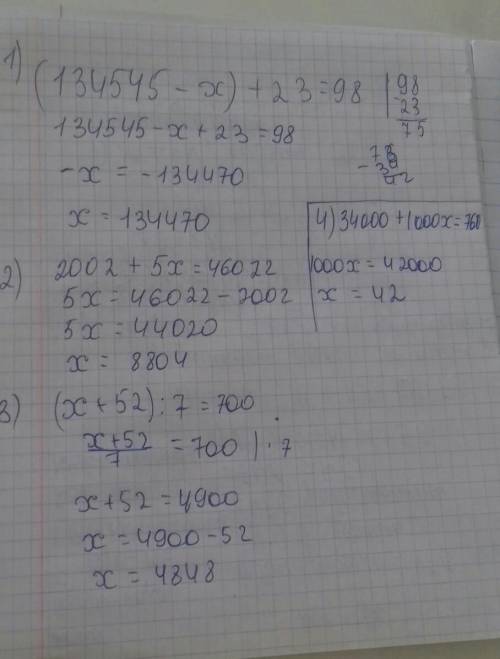 1)
(134545 - x) + 23 = 98
98
- 23
75
134545 - x + 23 = 98
- x = - 134470
x = 134470
4) 34000 + 1000x = 760
1000x = 42000
x = 42
2) 2002 + 5x = 46022
5x = 46022 - 2002
5x = 44020
x = 8804
3) (x + 52) : 7 = 700
x+52
7
= 700 | · 7
x + 52 = 4900
x = 4900 - 52
x = 4848